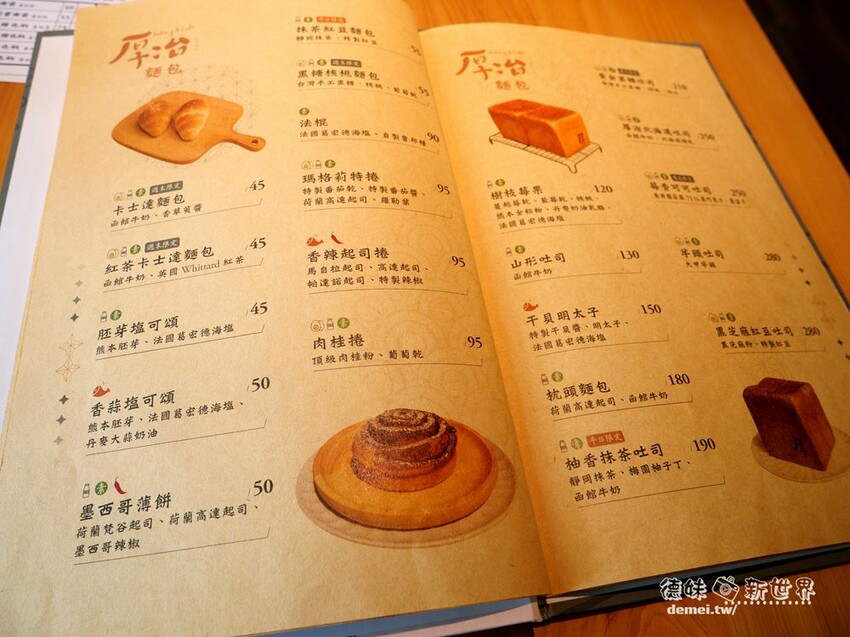 厚治
麵包
週末限定
卡士達麵包 45
函館牛奶、香草莢醬
週末限定
紅茶卡士達麵包 45
函館牛奶、英國 Whittard 紅茶
胚芽塩可頌 45
熊本胚芽、法國葛宏德海塩
香蒜塩可頌 50
熊本胚芽、法國葛宏德海塩、
丹麥大蒜奶油
墨西哥薄餅 50
荷蘭梵谷起司、荷蘭高達起司、
墨西哥辣椒
平日限定
抹茶紅豆麵包
靜岡抹茶、特製紅豆
週末限定
黑糖核桃麵包 55
台灣手工黑糖、核桃、葡萄乾
法棍 90
法國葛宏德海塩、自製魯邦種
瑪格莉特捲 95
特製番茄乾、特製番茄醬、
荷蘭高達起司、羅勒葉
香辣起司捲 95
馬自拉起司、高達起司、
帕達諾起司、特製辣椒
肉桂捲 95
頂級肉桂粉、葡萄乾
厚治
麵包
樹枝莓果 120
蔓越莓乾、藍莓乾、核桃、
熊本全粒粉、丹麥奶油乳酪、
法國葛宏德海塩
山形吐司 130
函館牛奶
干貝明太子 150
特製干貝醬、明太子、
法國葛宏德海塩
枕頭麵包 180
荷蘭高達起司、函館牛奶
平日限定
柚香抹茶吐司 190
靜岡抹茶、梅園柚子丁、
函館牛奶
黃金黑糖吐司 210
厚治北海道吐司 250
莓香可可吐司 250
芋頭吐司 280
大甲芋頭
黑芝麻紅豆吐司 280
黑芝麻粉、特製紅豆
德味 新世界
demei.tw/